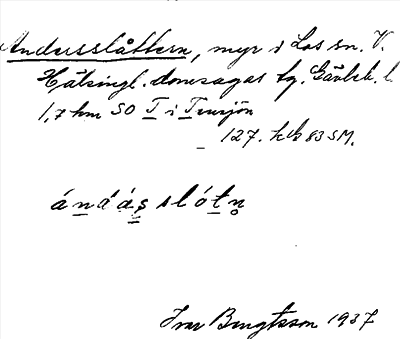 Andersslåttern, myr i Los sn. V.
Hälsingl. domsagas tg. Gävleb. l.
1,7 km SO T i Tensjön
127. kbl 83 SM.
á n d á ṣ s l ó t n̥
Ivar Bengtsson 1937